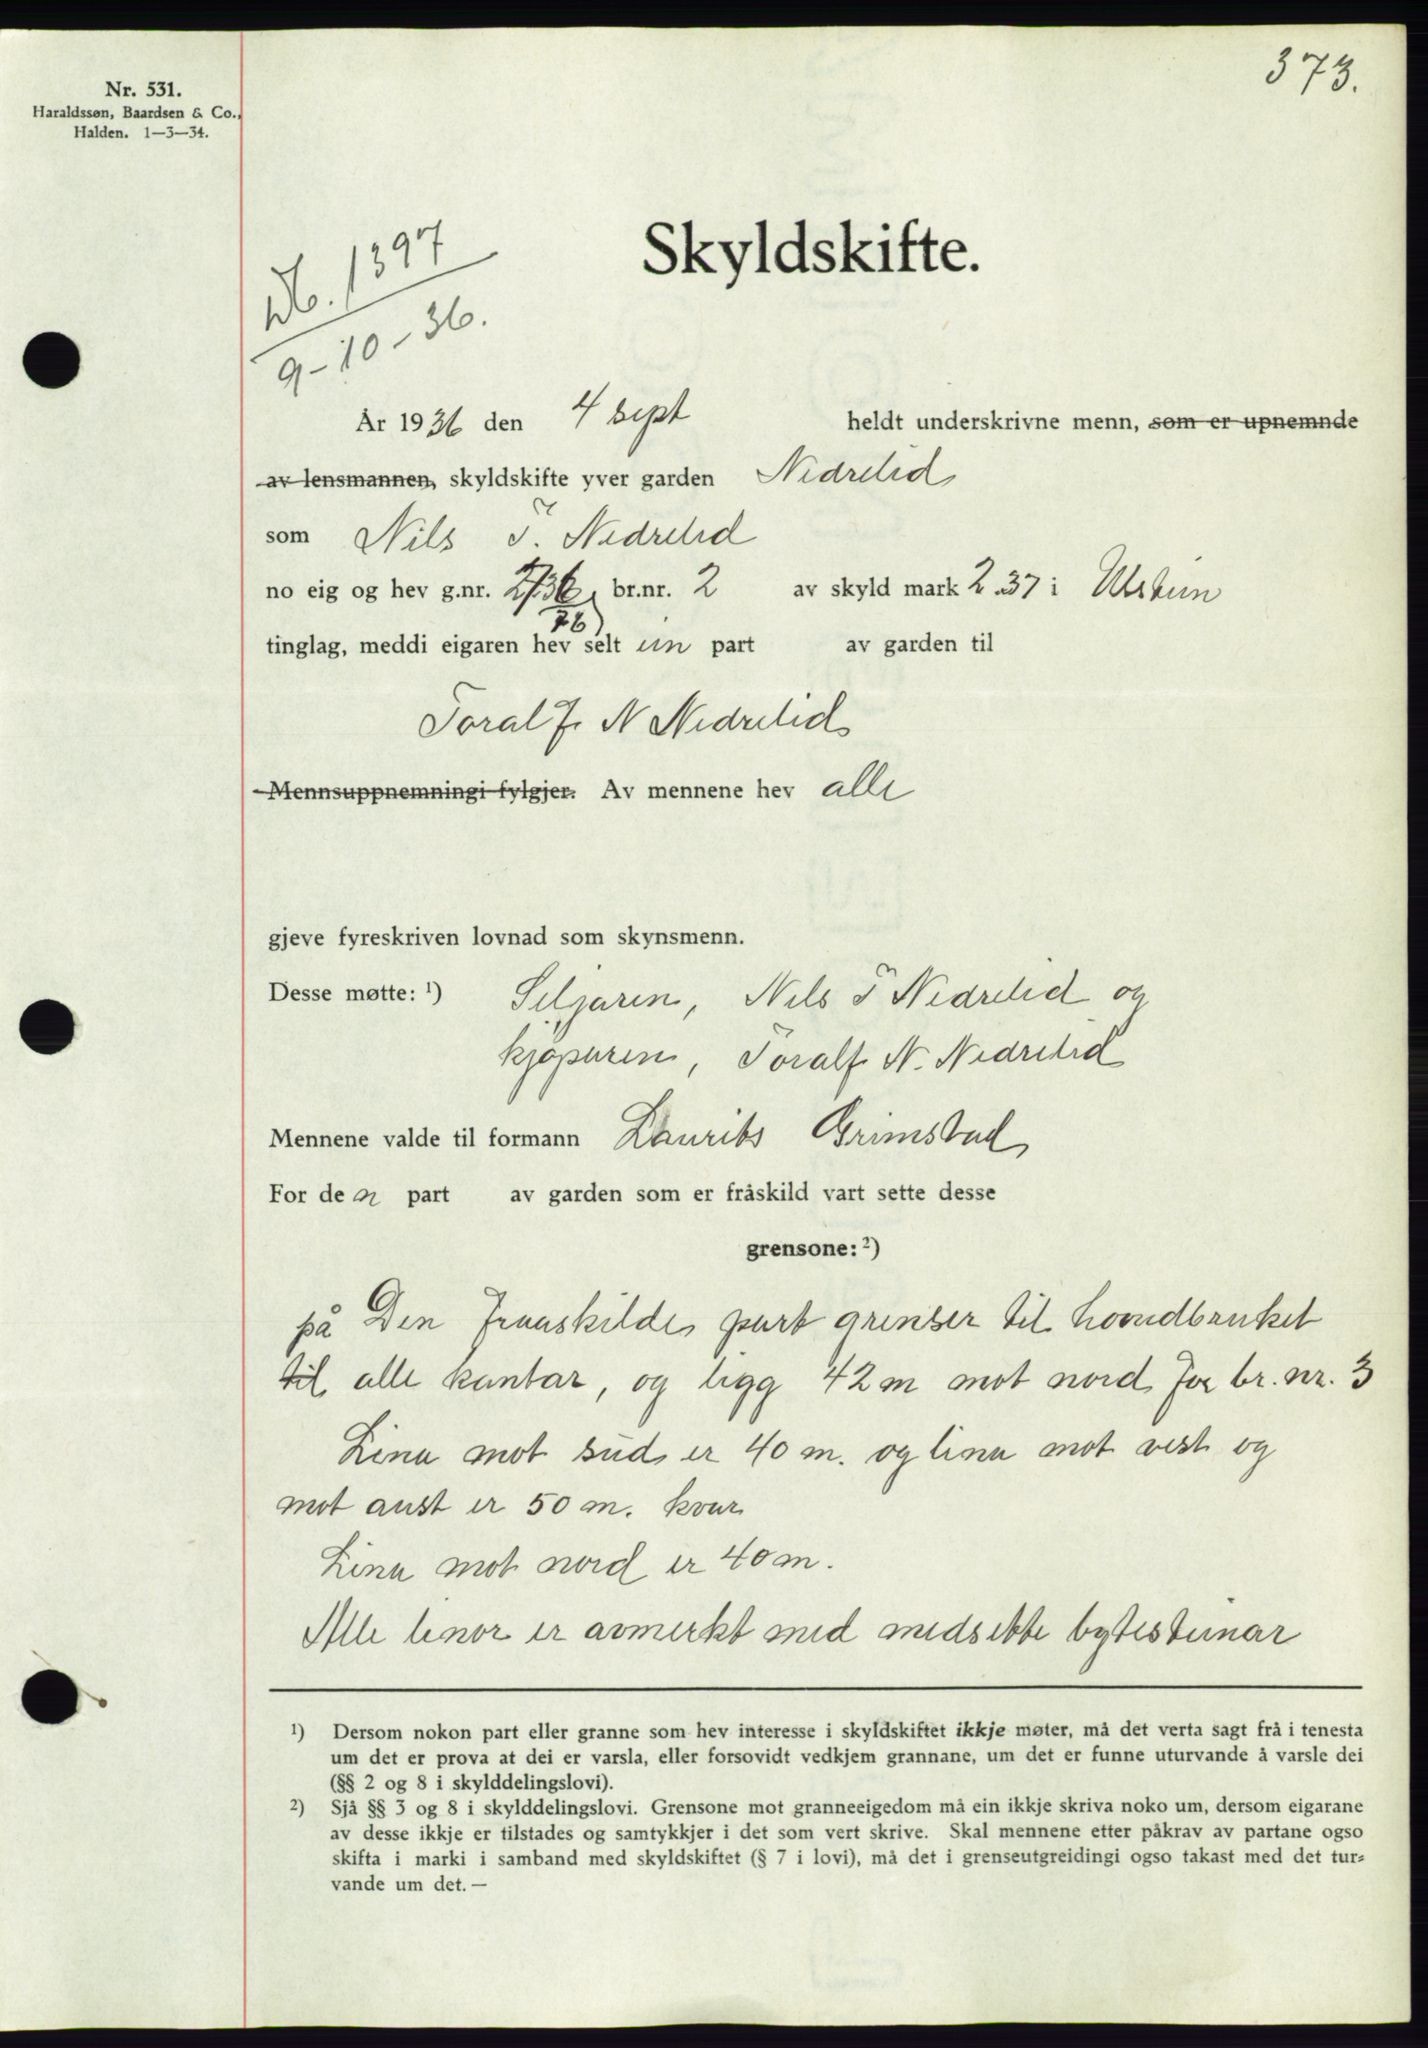 373.
Nr. 531.
Haraldssøn, Baardsen & Co.,
Halden. 1—3—34.
Skyldskifte.
Db. 1397
9-10-36.
År 1936 den 4 sept heldt underskrivne menn, som er upnemnde
av lensmannen, skyldskifte yver garden Nedrelid
som Nils T. Nedrelid
no eig og hev g.nr. br.nr. 2 av skyld mark 2.37 i Ulstein
76)
tinglag, meddi eigaren hev selt ein part av garden til
Toralf N Nedrelid
Mennsuppnemningi fylgjer. Av mennene hev alle
gjeve fyreskriven lovnad som skynsmenn.
Desse møtte: ¹) Seljaren, Nils T Nedrelid og
kjøparen, Toralf N. Nedrelid
Mennene valde til formann Laurits Grimstad
For den part av garden som er fråskild vart sette desse
grensone: ²)
på Den fraaskilde part grenser til hovudbruket
til alle kantar, og ligg 42 m mot nord for br. nr. 3
Lina mot sud er 40 m. og lina mot vest og
mot aust er 50 m. kvar
Lina mot nord er 40 m.
Alle linor er avmerkt med nedsette bytesteinar
¹) Dersom nokon part eller granne som hev interesse i skyldskiftet ikkje møter, må det verta sagt frå i tenesta
um det er prova at dei er varsla, eller forsovidt vedkjem grannane, um det er funne uturvande å varsle dei
(§§ 2 og 8 i skylddelingslovi).
²) Sjå §§ 3 og 8 i skylddelingslovi. Grensone mot granneeigedom må ein ikkje skriva noko um, dersom eigarane
av desse ikkje er tilstades og samtykkjer i det som vert skrive. Skal mennene etter påkrav av partane ogso
skifta i marki i samband med skyldskiftet (§ 7 i lovi), må det i grenseutgreidingi ogso takast med det tur=
vande um det. —